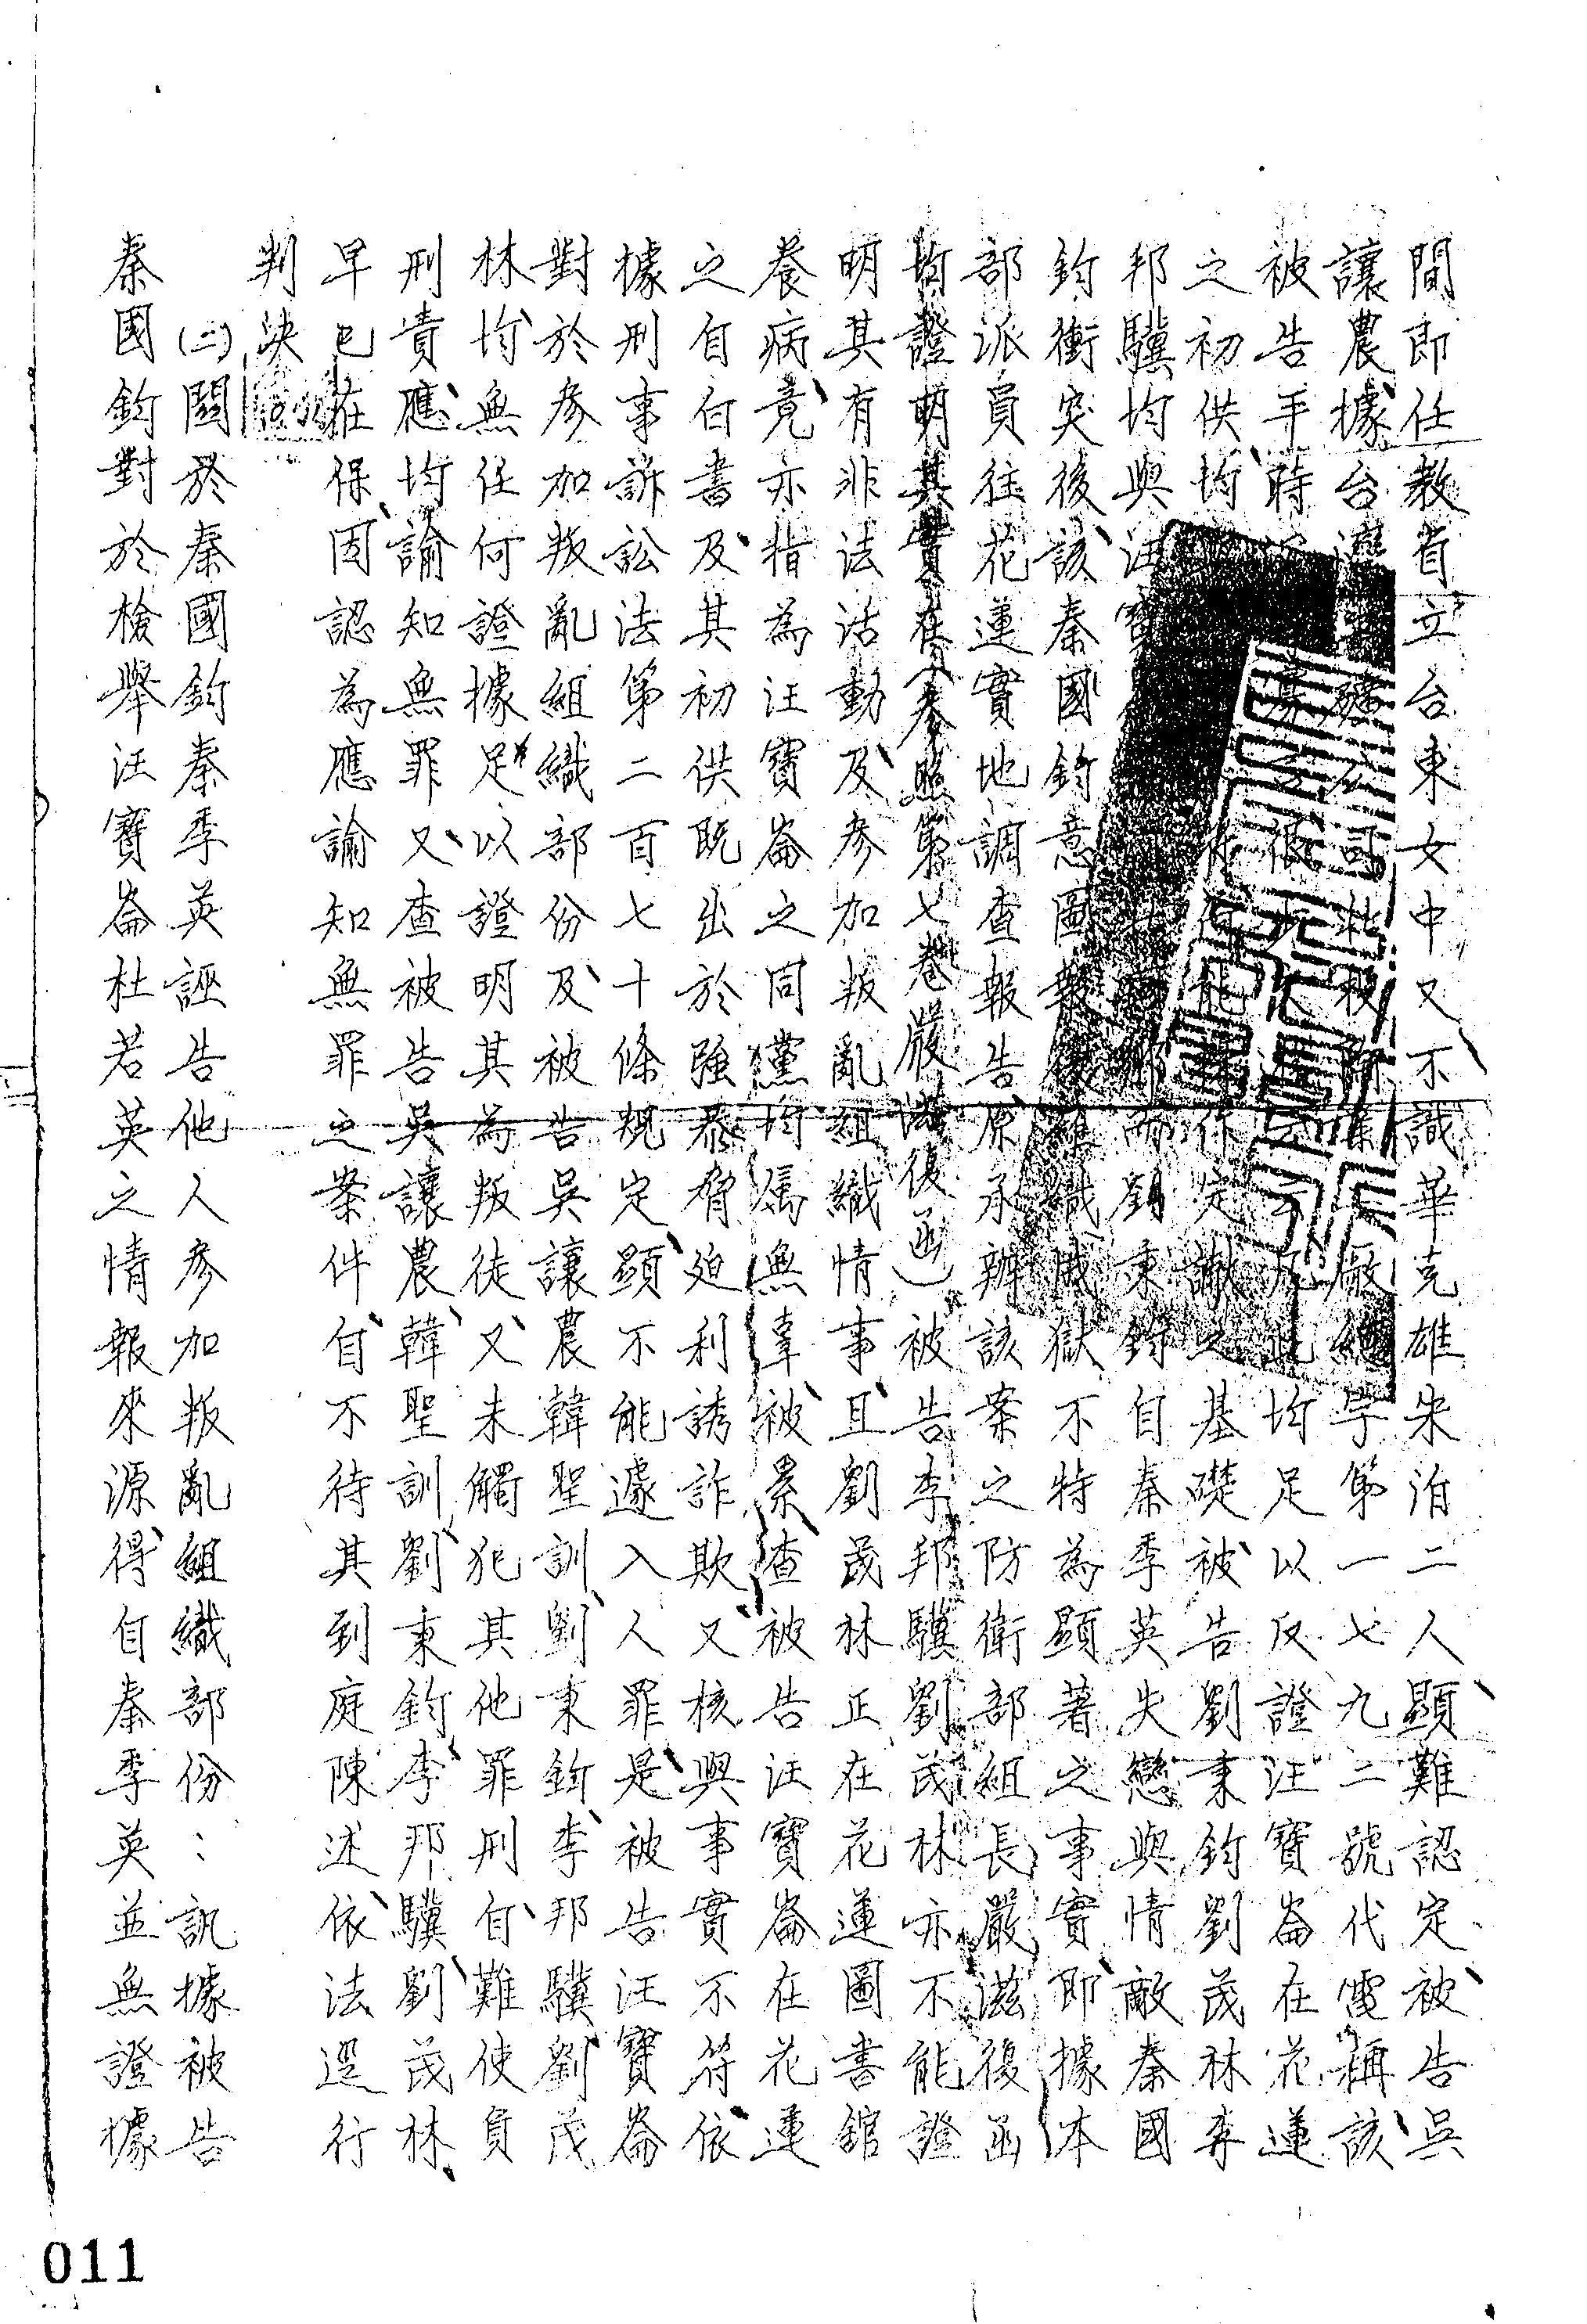 間即任教省立台東女中又不識華克雄朱泊二人顯難認定被告吳
讓農據台灣 公司 廠總字第一七九二號代電稱該
被告手時 均足以反證汪寶崙在花蓮
之初供均 作定讞之基礎被告劉秉鈞劉茂林李
邦驥均與汪寶 而劉秉鈞自秦季英失戀與情敵秦國
鈞衝突後該秦國鈞意圖報復羅織成獄不特為顯著之事實即據本
部派員往花蓮實地調查報告原承辦該案之防衛部組長嚴滋復函
均證明其實在(參照第七卷嚴滋復函)被告李邦驥劉茂林亦不能證
明其有非法活動及參加叛亂組織情事且劉茂林正在花蓮圖書舘
養病竟亦指為汪寶崙之同黨均屬無辜被累查被告汪寶崙在花蓮
之自白書及其初供既出於強暴脅迫利誘詐欺又核與事實不符依
據刑事訴訟法第二百七十條規定顯不能遽入人罪是被告汪寶崙
對於參加叛亂組織部份及被告吳讓農韓聖訓劉秉鈞李邦驥劉茂
林均無任何證據足以證明其為叛徒又未觸犯其他罪刑自難使負
刑責應均諭知無罪又查被告吳讓農韓聖訓劉秉鈞李邦驥劉茂林
早已在保因認為應諭知無罪之案件自不待其到庭陳述依法逕行
判決
(二)關於秦國鈞秦季英誣告他人參加叛亂組織部份：訊據被告
秦國鈞對於檢舉汪寶崙杜若英之情報來源得自秦季英並無證據
011